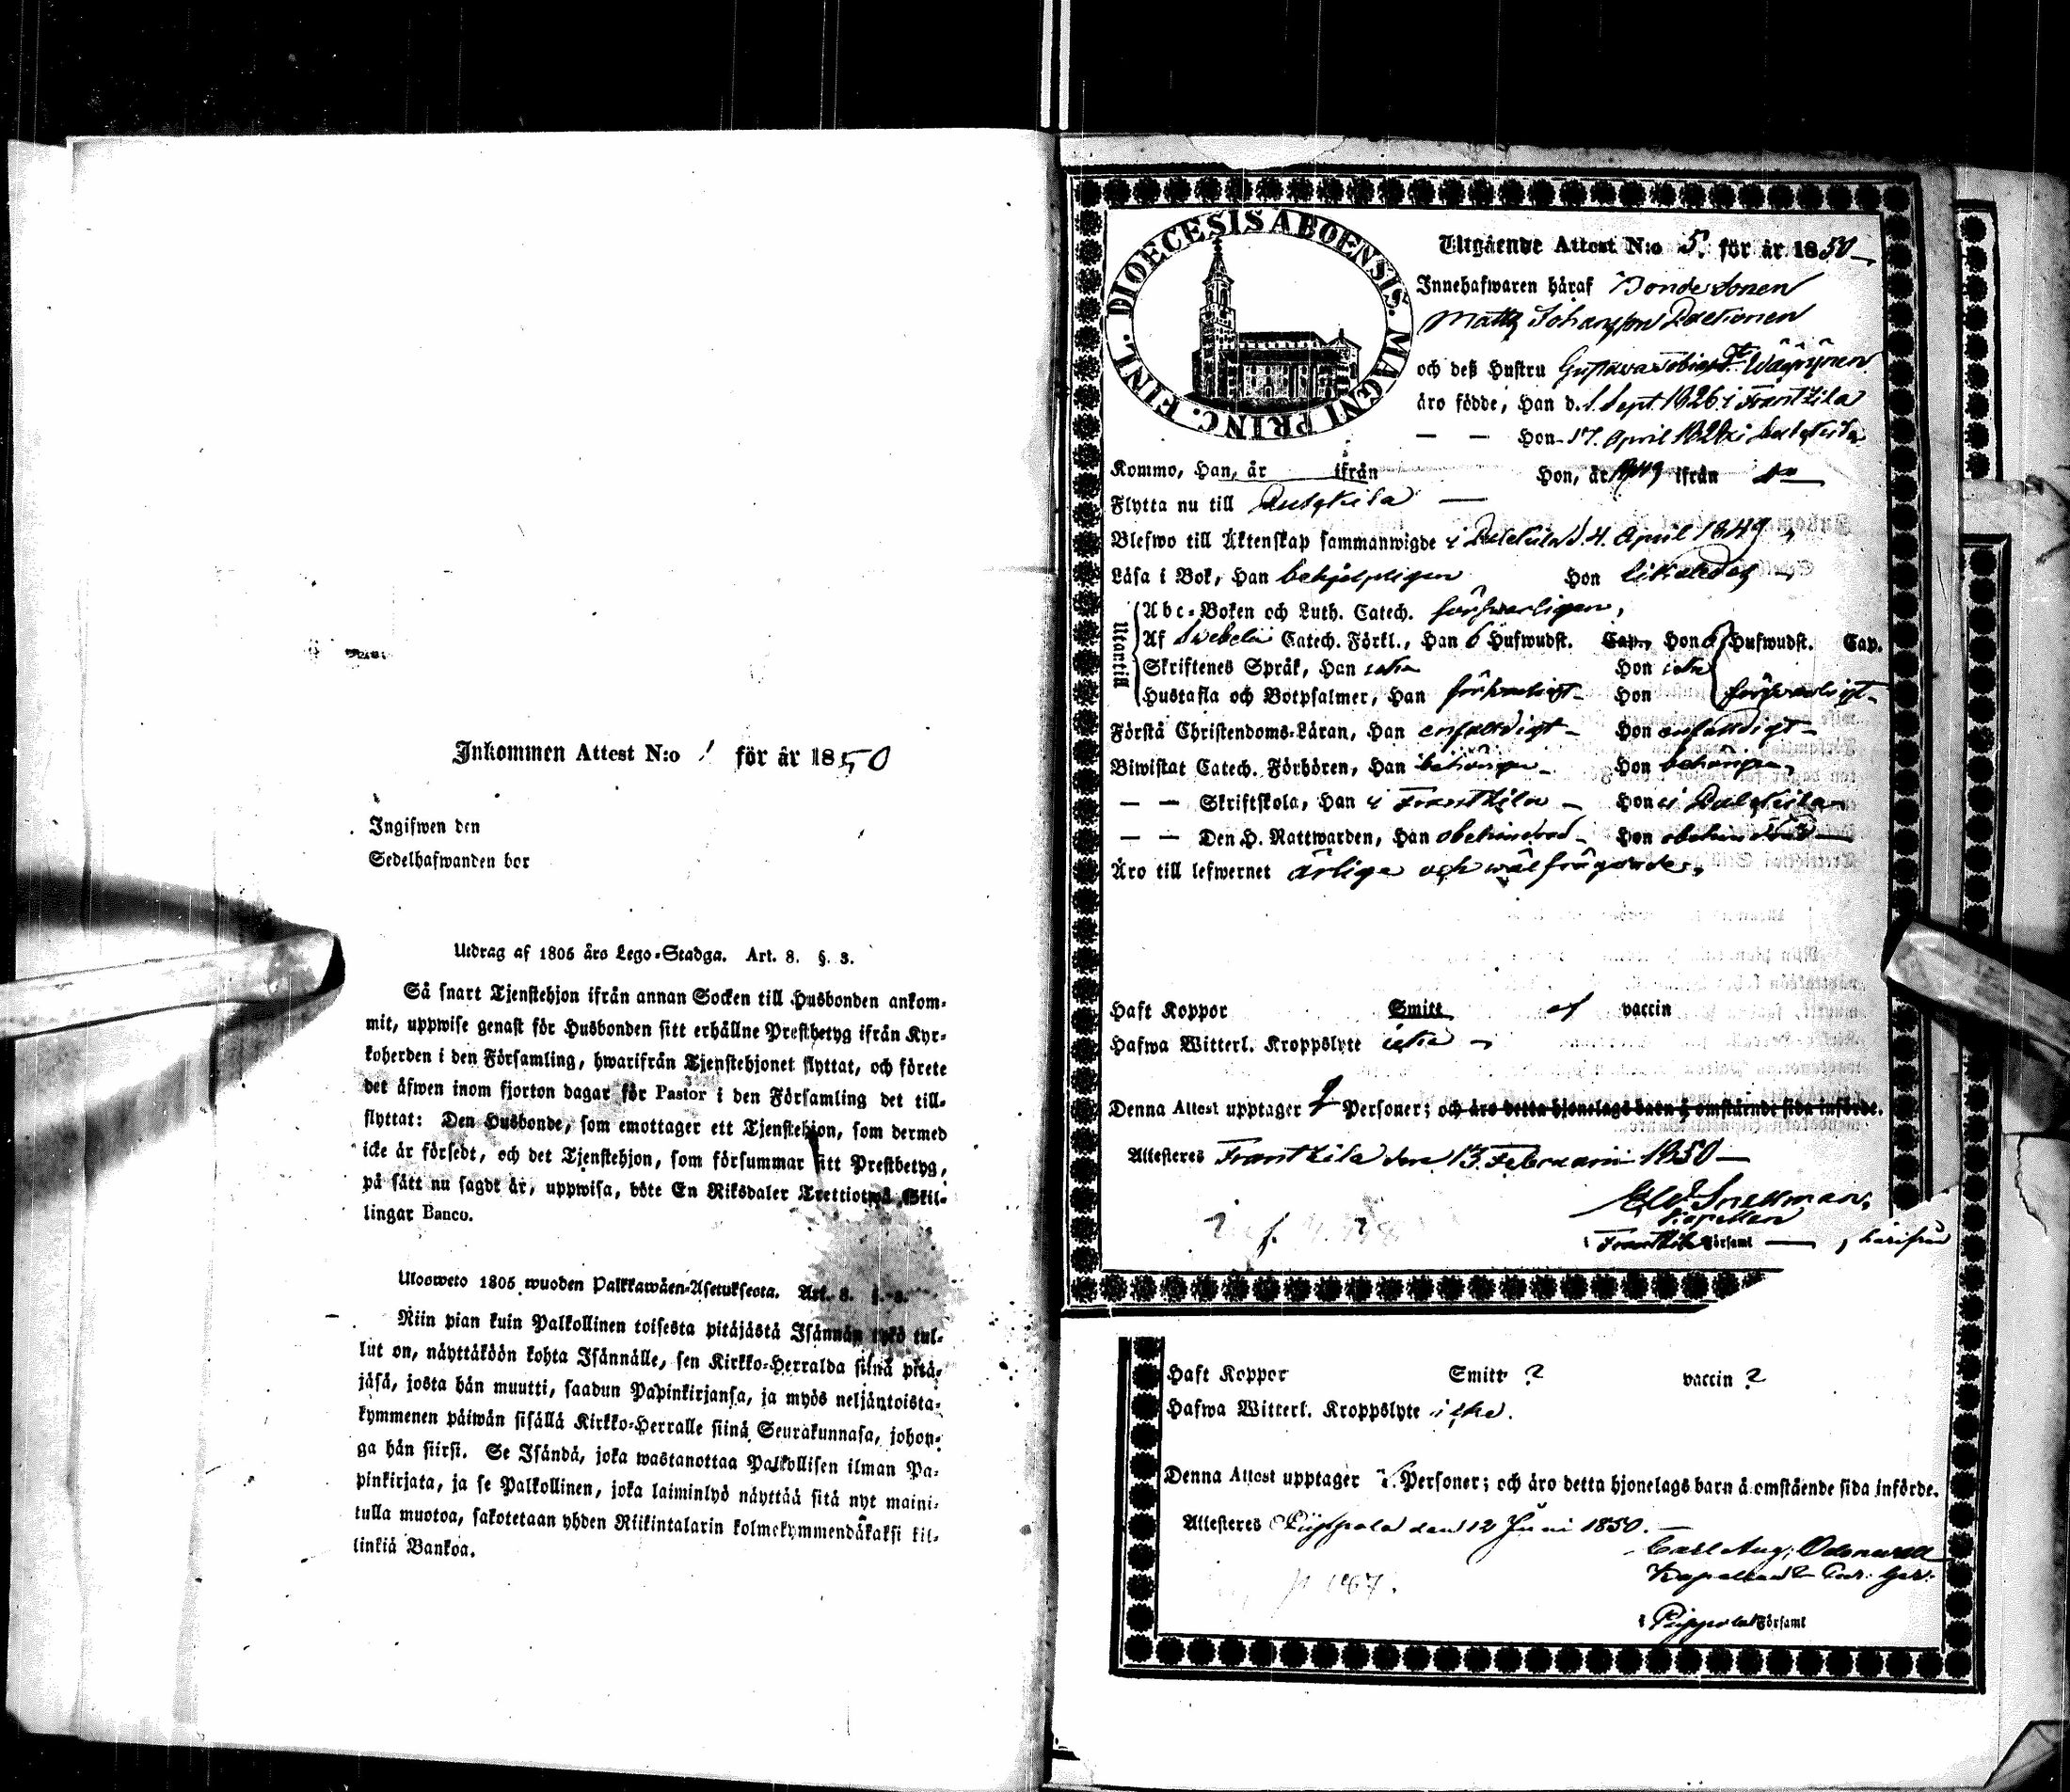 Inkommen Attest N:o 1 för år 1850
Ingifwen den
Sedelhafwanden bor
Utdrag af 1805 års Lego-Stadga. Art. 8. §. 3.
Så snart Tjenstehjon ifrån annan Socken till Husbonden ankom-
mit, uppwise genast för Husbonden sitt erhållne Prestbetyg ifrån Kyr-
koherden i den Församling, hwarifrån Tjenstehjonet flyttat, och förete
det äfwen inom fjorton dagar för Pastor i den Församling det till-
flyttat: Den Husbonde, som emottager ett Tjenstehjon, som dermed
icke är försedt, och det Tjenstehjon, som försummar sitt Prestbetyg,
på sätt nu sagdt är, uppwisa, böte En Riksdaler Trettiotwå Skil-
lingar Banco.
Ulosweto 1805 wuoden Palkkawäen-Asetuksesta. Art. 8. §. 3.
Niin pian kuin Palkollinen toisesta pitäjästä Isännän tykö tul-
lut on, näyttäköön kohta Isännälle, sen Kirkko-Herralda siinä pitä-
jäsä, josta hän muutti, saadun Papinkirjansa, ja myös neljäntoista-
kymmenen päiwän sisällä Kirkko-Herralle siinä Seurakunnasa, johon-
ga hän siirsi. Se Isändä, joka wastanottaa Palkollisen ilman Pa-
pinkirjata, ja se Palkollinen, joka laiminlyö näyttää sitä nyt maini-
tulla muotoa, sakotetaan yhden Riikintalarin kolmekymmendäkaksi kil-
linkiä Bankoa.
DIOECESIS ABOENSIS. MAGNI PRINC. FINL.
Utgående Attest N:o 5. för år 1850
Innehafwaren häraf Bondesonen
Matts Johansson
och deß Hustru Gustava Wäyrynen
äro födde, Han d. 1 Sept. 1826 i Frantzila
— — Hon 17. April i Pulkkila
Kommo, Han, år ifrån Hon, år 1849 ifrån
Flytta nu till Pulkkila —
Blefwo till Äktenskap sammanwigde i Pulkkila d. 4. April 1849
Läsa i Bok, Han behjelpligen Hon likaledes
Utantill
Abc-Boken och Luth. Catech. förswarligen,
Af Svebelii Catech. Förkl., Han 6 Hufwudst. Cap., Hon 6 Hufwudst. Cap.
Skriftenes Språk, Han icke Hon icke
Hustafla och Botpsalmer, Han förswarligt Hon förswarligt
Förstå Christendoms-Läran, Han enfaldigt Hon enfaldigt
Biwistat Catech. Förhören, Han behörigen Hon behörigen
— — Skriftskola, Han i Frantzila Hon i Pulkkila
— — Den H. Nattwarden, Han obehindrad Hon obehindrad
Äro till lefwernet ärlige och wälfrägdade.
Haft Koppor Smitt af vaccin
Hafwa Witterl. Kroppslyte icke
Denna Attest upptager 2 Personer; och äro detta hjonelags barn å omstående sida införde.
Attesteres Frantzila den 13 Februarii 1850
Snellman,
Kapellan
i Frantzila Församl. —, härifrån
Haft Koppor Smitt ? vaccin ?
Hafwa Witterl. Kroppslyte icke.
Denna Attest upptager Personer; och äro detta hjonelags barn å omstående sida införde.
Attesteres Piippola den 12 Juni 1850.
Carl Aug. Odenwall
Kapellan
i Piippola Församl
p. 167.